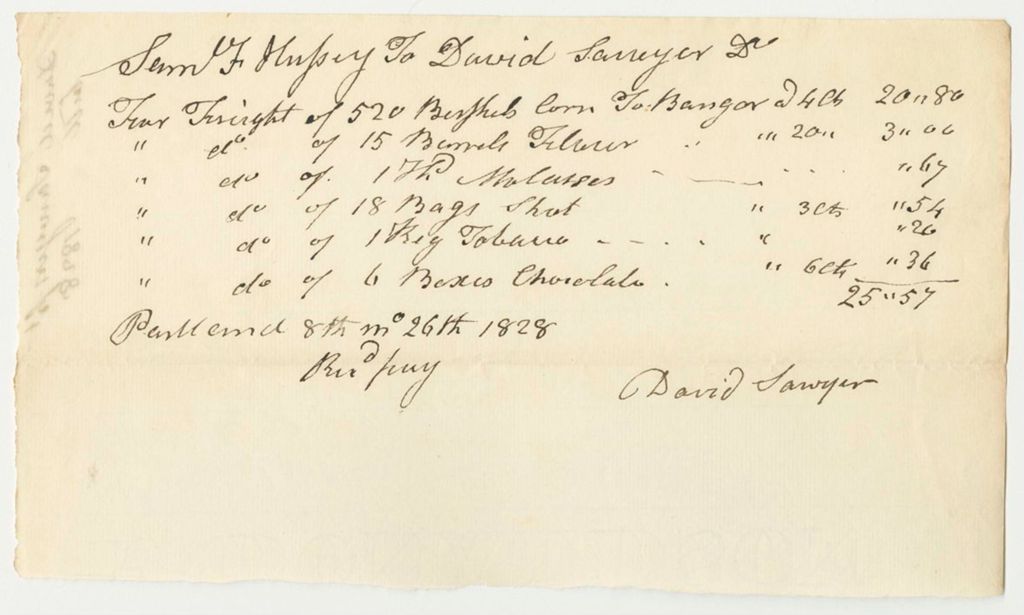 Saml F Hussey To David Sawyer Dr
Four Freight of 520 Bushels Corn To Bangor a 4 cts 20"80
" do of 15 Barrels Flour " "20" 3"00
" do of 1 Hd Molasses "67
" do of 18 Bags Shot " 3cts "54
" do of 1 Keg Tobacco " "20
" do of 6 Boxes Chocolate " 6cts "36
25"57
Portland 8th mo 26th 1828
Recd pay
David Sawyer